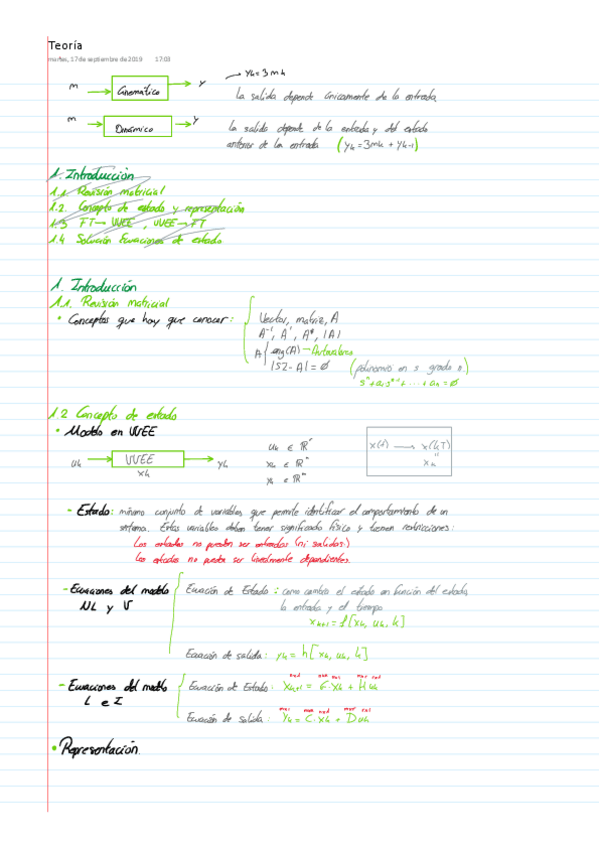 Teoría
martes, 17 de septiembre de 2019 17:03
m → Cinemático → y → yk=3mk
La salida depende únicamente de la entrada
m → Dinámico → y La salida depende de la entrada y del estado
anterior de la entrada (yk=3mk + yk-1)
1. Introducción
1.1 Revisión matricial
1.2. Concepto de estado y representación
1.3 FT→ VVEE , VVEE→FT
1.4 Solución Ecuaciones de estado
1. Introducción
1.1. Revisión matricial
• Conceptos que hay que conocer: Vector, matriz, A
A⁻¹, A', A*, |A|
A { eng(A) – Autovalores
|SI - A| = ∅ (polinomio en s grado n.)
sⁿ+a₁sⁿ⁻¹+...+aₙ=∅
1.2 Concepto de estado
• Modelo en VVEE
uk → VVEE → yk
xk
uk ∈ ℝʳ
xk ∈ ℝⁿ
yk ∈ ℝᵐ
x(t) → x(kT)
xk
- Estado: mínimo conjunto de variables que permite identificar el comportamiento de un
sistema. Estas variables deben tener significado físico y tienen restricciones:
Los estados no pueden ser entradas (ni salidas.)
Los estados no pueden ser linealmente dependientes.
- Ecuaciones del modelo Ecuación de Estado: como cambia el estado en función del estado,
NL y V la entrada y el tiempo
xk+1 = f[xk, uk, k]
Ecuación de salida: yk = h[xk, uk, k]
- Ecuaciones del modelo Ecuación de Estado: Xk+1 = G·Xk + H uk
L e I
Ecuación de salida: Yk = C·Xk + D uk
• Representación.